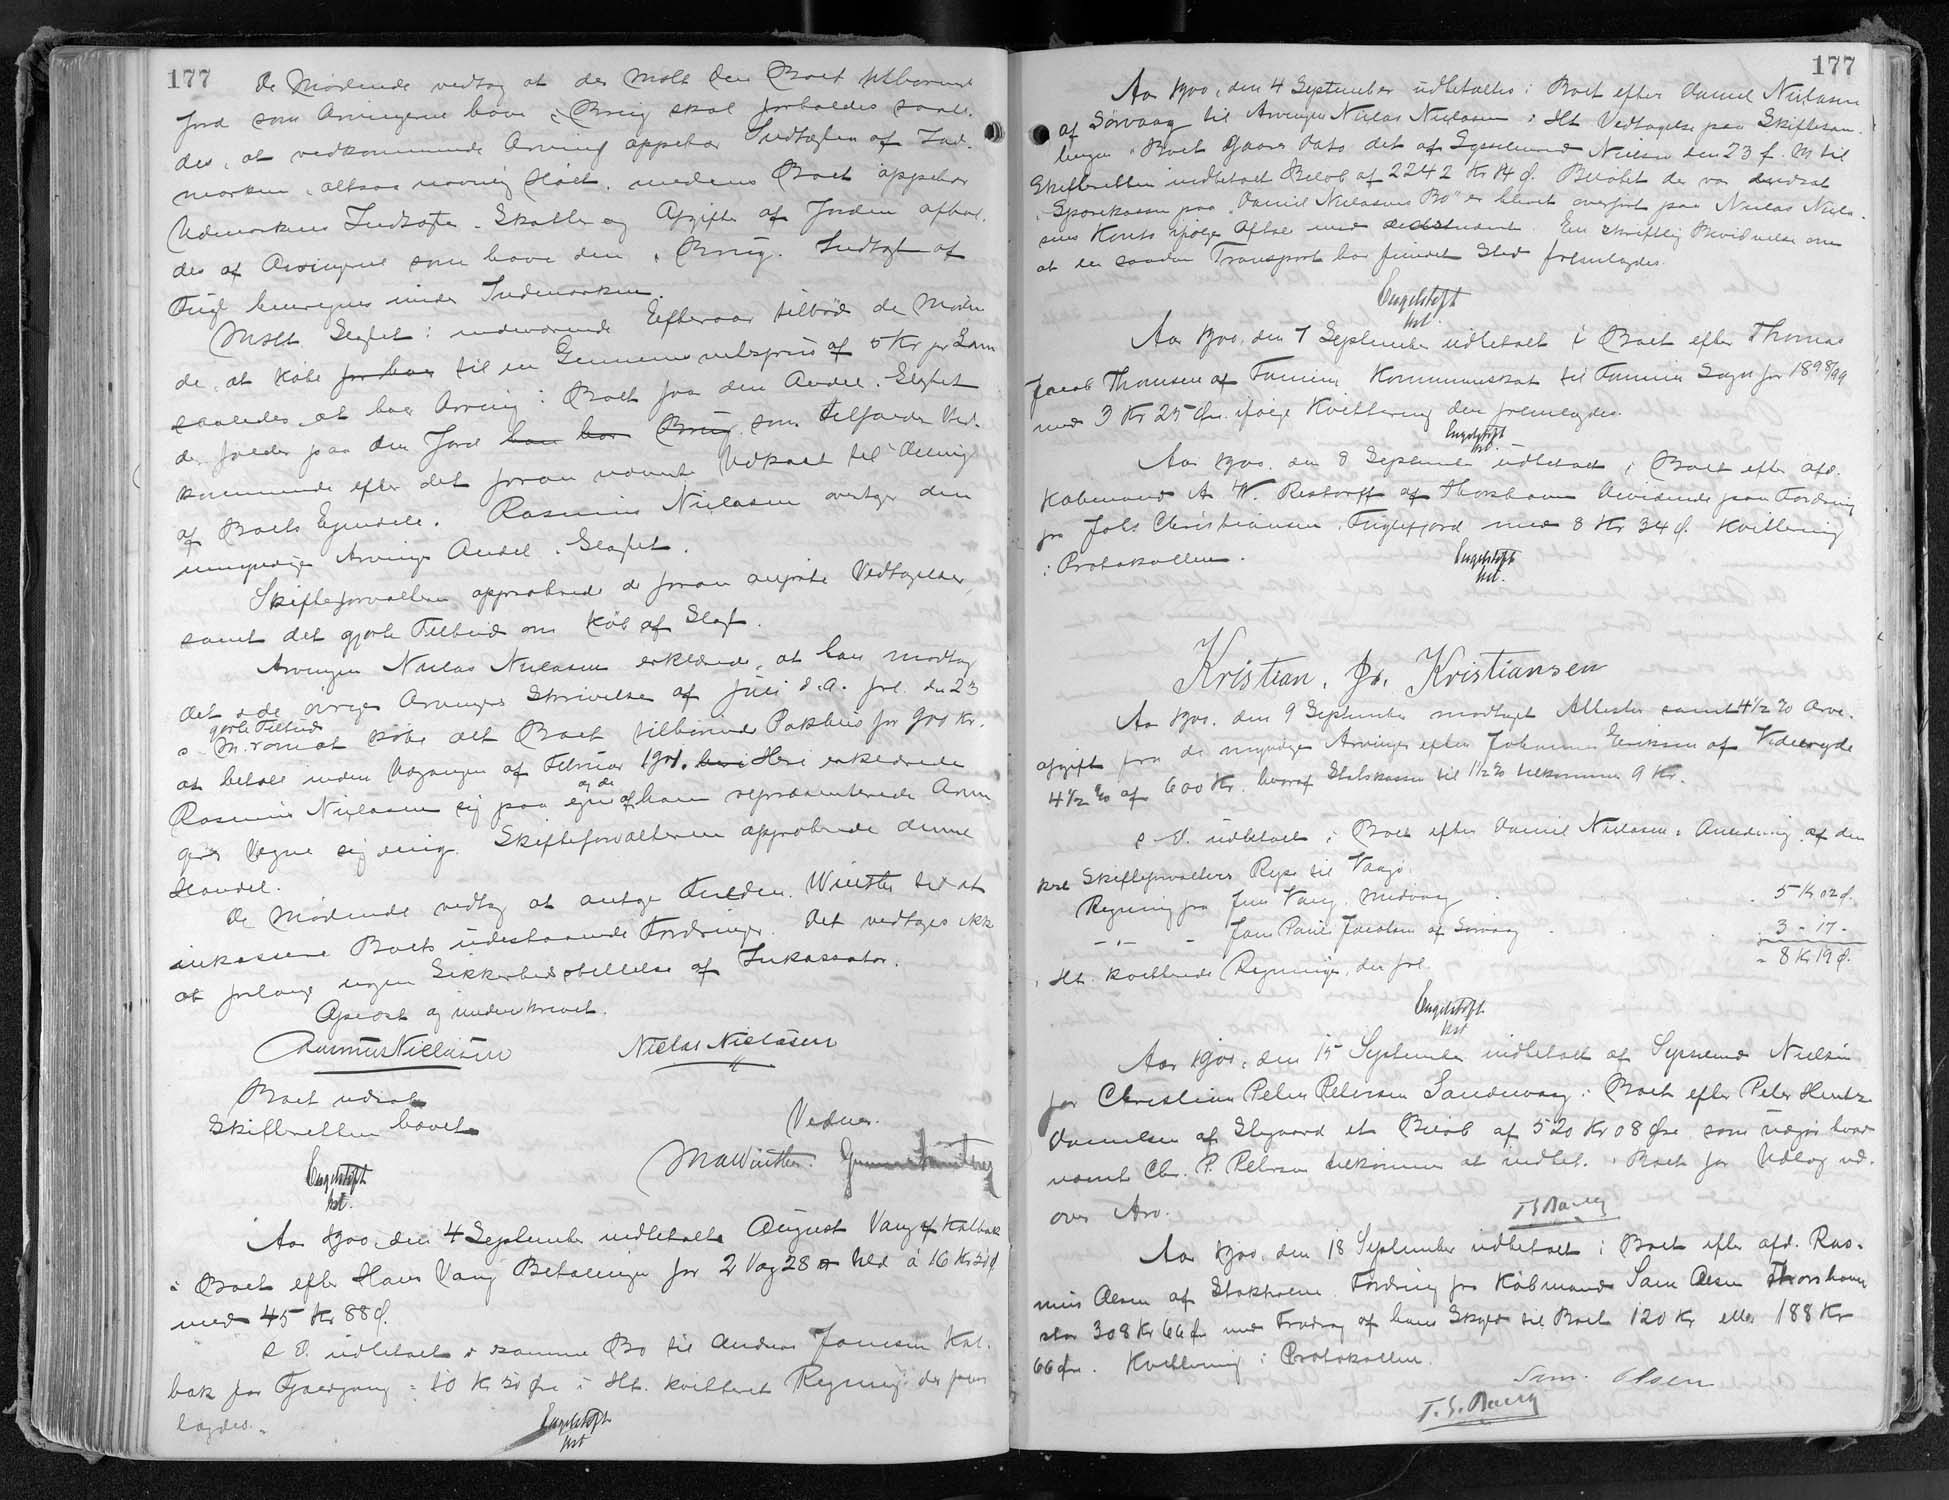 177
De Mødende vedtog at der med den Boet tilhørende
Jord som Arvingerne have i Brug skal forholdes saale-
des, at vedkommende Arving oppebær Indtægten af Ind-
marken, altsaa navnlig Høet, medens Boet oppebær
Udmarkens Indtægter. Skatter og Afgifter af Jorden afhol-
des af Arvingerne som have den i Brug. Indtægt af
Fugl henregnes under Indmarken.
Mht. Slagtet i indeværende Efteraar tilbød de Møden
de, at købe for hver til en Gennemsnitspris af 5 Kr pr Lam
saaledes at hver Arving i Boet faar den Andel i Slagtet
der falder paa den Jord han har i Brug som tilfalder Ved-
kommende efter det foran nævnte Udkast til Deling
af Boets Ejendele. Rasmus Niclasen overtager den
umyndige Arvings Andel i Slagtet.
Skifteforvalteren approberede de foran anførte Vedtagelser,
samt det gjorte Tilbud om Køb af Slagt.
Arvingen Niclas Niclasen erklærede, at han modtog
det i de øvrige Arvingers Skrivelse af Juli d.A. frl. den 23
gjorte Tilbud
s. M. om at købe det Boet tilhørende Pakhus for 900 Kr.
at betale inden Udgangen af Februar 1901. Heri erklærede
Rasmus Niclasen sig paa egne og de af ham repræsenterede Arvin
gers Vegne sig enig. Skifteforvalteren approberede denne
Handel.
De Mødende vedtog at antage Fuldm. Winther til at
inkassere Boets udestaaende Fordringer. Det vedtoges ikke
at forlange nogen Sikkerhedsstillelse af Inkassator.
Oplæst og underskrevet.
Rasmus Niclasen Niclas Niclasen
Boet udsat
Skifteretten hævet
Engelstoft
kst.
Vidner.
MAWinther.
Aar 1900, den 4 September indbetalte August Vang af Kalbak
i Boet efter Hans Vang Betaling for 2 Vog 28 Uld à 16 Kr 50 Ø
med 45 Kr 88 Ø.
S. D. udbetalt i samme Bo til Andreas Joensen Kal-
bak for Gjærdgang 10 Kr 50 Øre i Ht. kvitteret Regning der frem
lagdes.
Engelstoft
kst
177
Aar 1900, den 4 September udbetaltes i Boet efter Daniel Niclasen
af Sørvaag til Arvingen Niclas Niclasen i Ht Vedtagelse paa Skiftesam-
lingen i Boet Gaars Dato det af Sysselmand Nielsen den 23 f. M til
Skifteretten indbetalt Beløb af 2242 Kr 14 Ø. Beløbet der var indsat
i Sparekassen paa "Daniel Niclasens Bo" er blevet overført paa Niclas Nicla-
sens Konto ifølge Aftale med . En skriftlig Bevidnelse om
at en saadan Transport har fundet Sted fremlagdes.
Engelstoft
kst.
Aar 1900, den 7 September udbetalt i Boet efter Thomas
Jacob Thomsen af Famien Kommuneskat til Famien Sogn for 1898/99
med 3 Kr 25 Øre ifølge Kvittering der fremlagdes.
Engelstoft
kst.
Aar 1900, den 8 September udbetalt i Boet efter afd.
Købmand A W. Restorff af Thorshavn Dividende paa Fordring
fra Johs Christiansen, Fuglefjord med 8 Kr 34 Ø. Kvittering
i Protokollen.
Engelstoft
kst.
Kristian. Js. Kristiansen
Aar 1900, den 9 September modtaget Attester samt 4½ % Arve-
afgift fra de myndige Arvinger efter Johannes Eriksen af Videreyde
4½ % af 600 Kr. hvoraf Statskassen til 1½ % tilkommer 9 Kr.
S. D. udbetalt i Boet efter Daniel Niclasen i Anledning af den
kst Skifteforvalters Rejse til Vaagø
Regning fra Jens Vang, Midvaag . . 5 Kr 02 Ø.
- " - Joen Pauli Jacobsen af Sørvaag . . . 3 - 17 -
= 8 Kr 19 Ø.
i Ht. kvitterede Regninger, der frl.
Engelstoft
kst
Aar 1900, den 15 September indbetalt af Sysselmd Nielsen
for Christian Peter Petersen Sandevaag i Boet efter Peter Hentze
Danielsen af Elgaard et Beløb af 520 Kr 08 Øre, som udgør hvad
nævnte Chr. P. Petersen tilkommer at indbet. i Boet for Udlæg ud-
over Arv.
Aar 1900, den 18 September udbetalt i Boet efter afd. Ras-
mus Olsen af Stokholm Fordring fra Købmand Sam Olsen Thorshavn
stor 308 Kr 66 Ør med Fradrag af hans Skyld til Boet 120 Kr eller 188 Kr
66 Øre. Kvittering i Protokollen.
Sam. Olsen